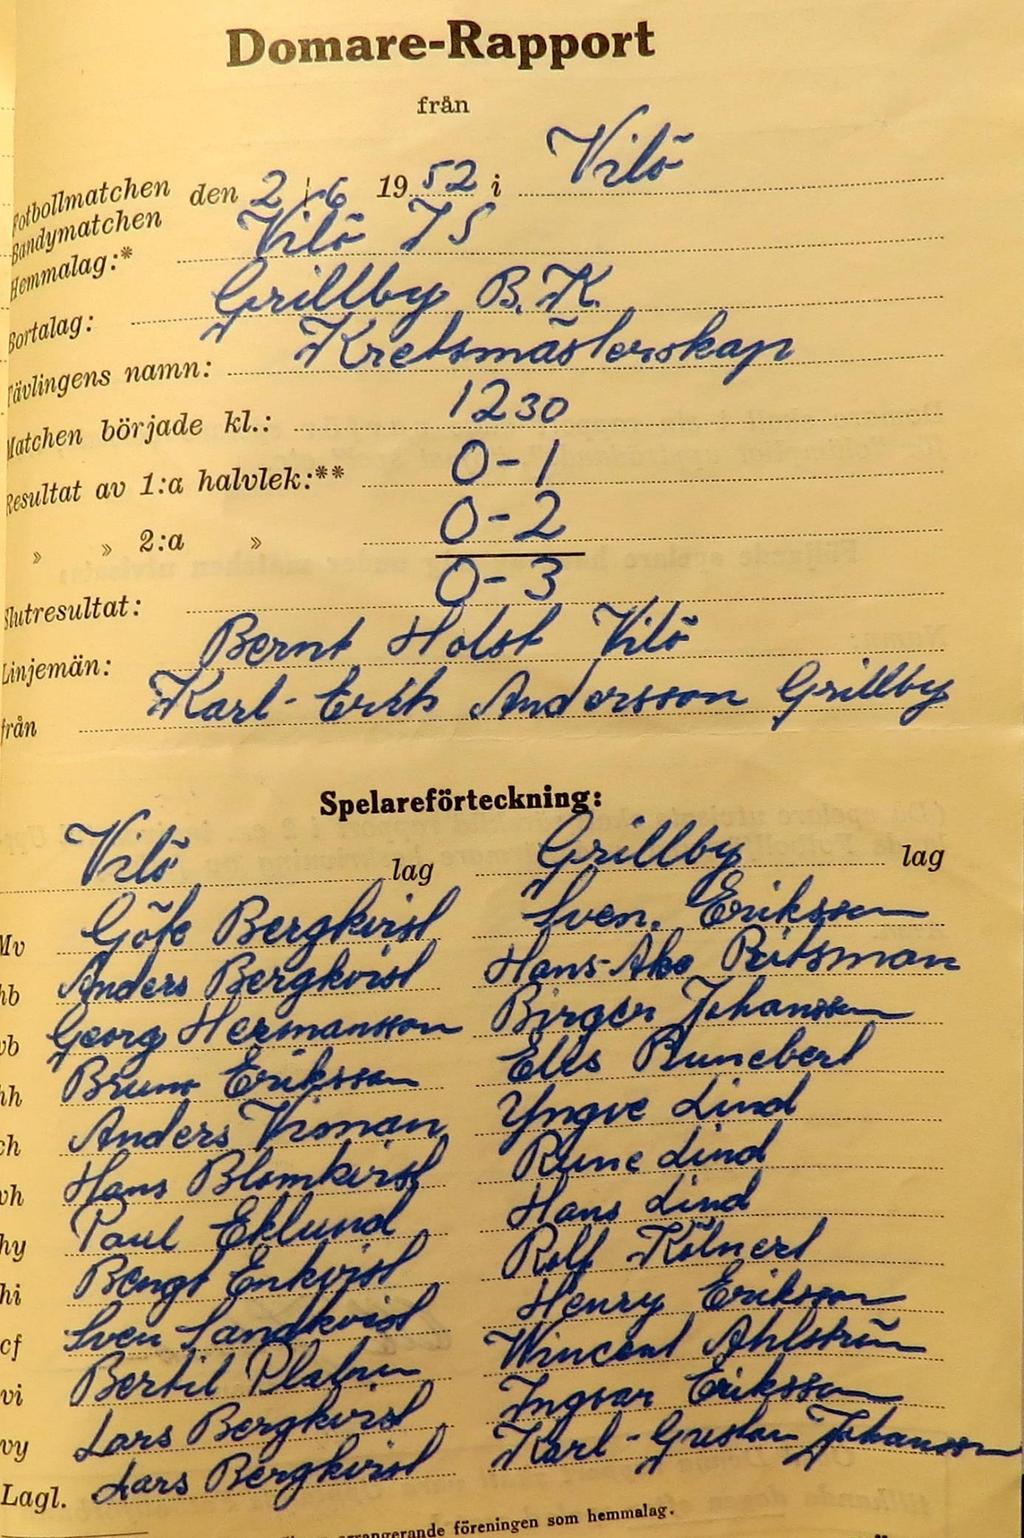 Domare-Rapport
från
Fotbollmatchen
Bandymatchen
den 2/6 1952 i Vilö
Hemmalag:* Vilö IS
Bortalag: Grillby B.K.
Tävlingens namn: Kretsmästerskap
Matchen började kl.: 1230
Resultat av 1:a halvlek:** 0-1
» » 2:a » 0-2
Slutresultat: 0-3
Linjemän: Bernt Holst Vilö
från Karl-Erik Andersson Grillby
Spelareförteckning:
Vilö lag Grillby lag
Mv Göte Bergkvist Sven. Eriksson
hb Anders Bergkvist Hans-Åke Ritsman
vb Georg Hermansson Birger Johansson
hh Bruno Eriksson Elis Runebert
ch Anders Yngve Lind
vh Hans Blomkvist Rune Lind
hy Paul Eklund Hans Lind
hi Bengt Enkvist Rolf Kölnert
cf Sven Sandkvist Henry Eriksson
vi Bertil Wincent Ahlström
vy Lars Bergkvist Ingvar Eriksson
Lagl. Lars Bergkvist Karl-Gustav Johansson
arrangerande föreningen som hemmalag.